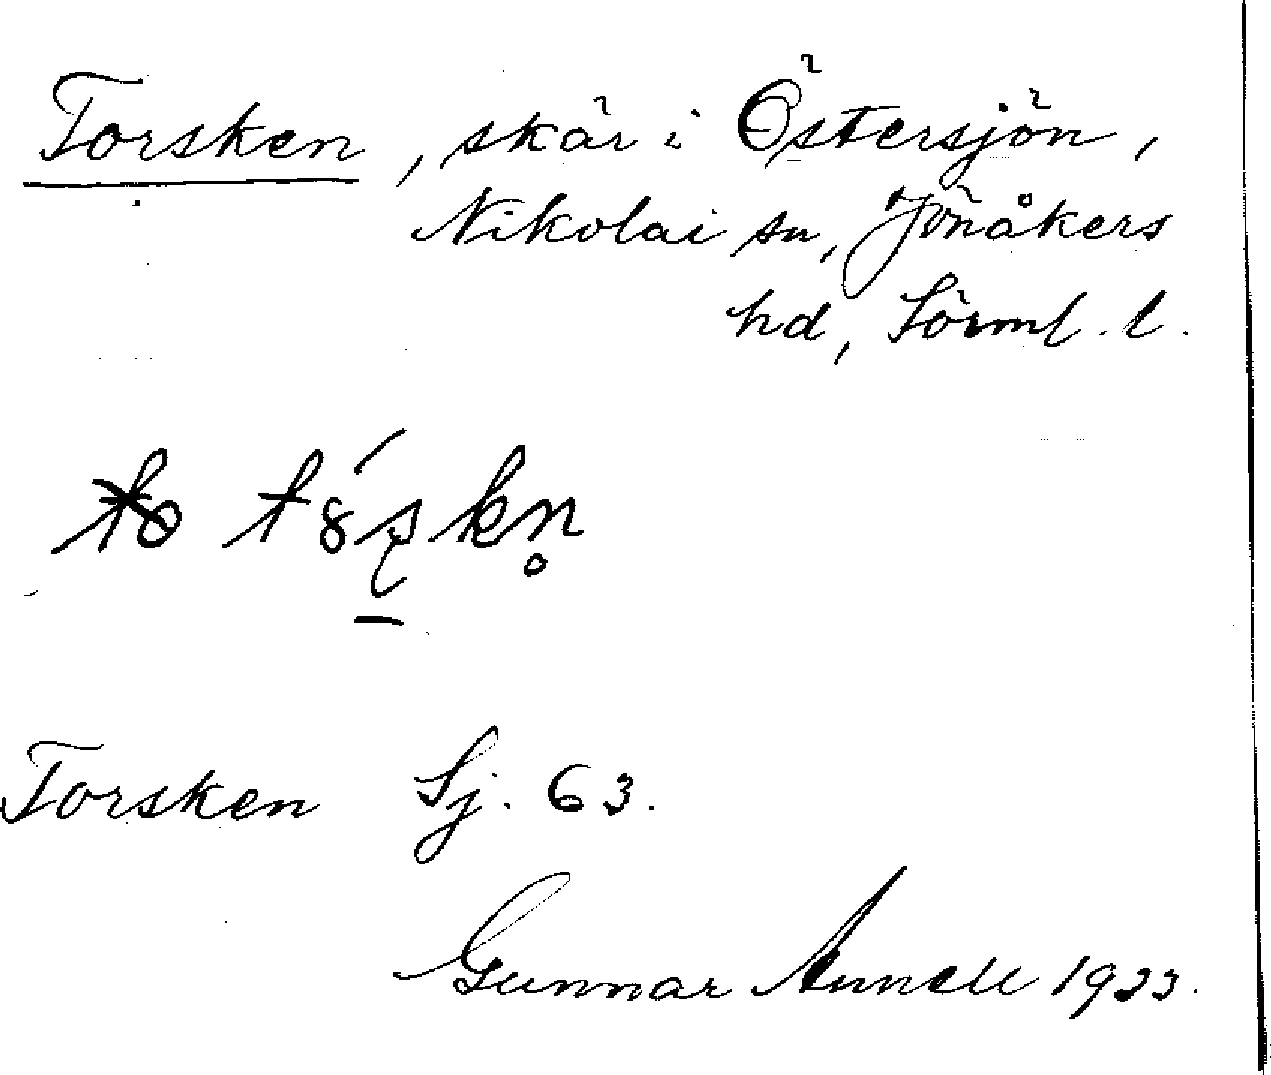 Torsken, skär i Östersjön,
Nikolai sn, Jönåkers
hd, Sörml. l.
Torsken Sj. 63.
Gunnar Annell 1933.